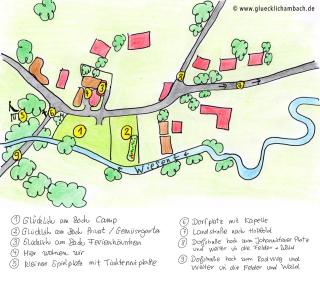 © www.gluecklichambach.de
4
3
8
7
1
2
5
6
9
Wiesent
① Glücklich am Bach Camp
② Glücklich am Bach Privat / Gemüsegarten
③ Glücklich am Bach Ferienhäuschen
④ Hier wohnen wir
⑤ kleiner Spielplatz mit Tischtennisplatte
⑥ Dorfplatz mit Kapelle
⑦ Landstraße nach Hollfeld
⑧ Dorfstraße hoch zum Johannitaler Platz
und weiter in die Felder + Wald
⑨ Dorfstraße hoch zum Radweg und
weiter in die Felder und Wald